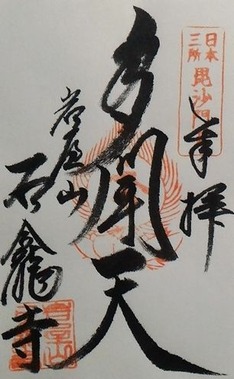 日本
三所
毘沙門
奉拝
多聞天
岩屋山
石龕寺